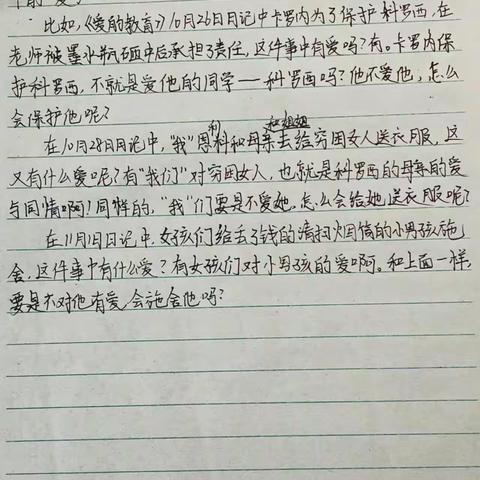 比如,《爱的教育》10月26日日记中卡罗内为了保护科罗西,在
老师被墨水瓶砸中后承担了责任,这件事中有爱吗?有。卡罗内保
护科罗西,不就是爱他的同学——科罗西吗?他不爱他,怎么
会保护他呢?
在10月28日日记中,“我”恩利科和母亲和姐姐去给穷困女人送衣服,这
又有什么爱呢?有“我们”对穷困女人,也就是科罗西的母亲的爱
与同情啊!同样的,“我”们要是不爱她,怎么会给她送衣服呢?
在11月1日日记中,女孩们给丢了钱的清扫烟囱的小男孩施
舍,这件事中有什么爱?有女孩们对小男孩的爱啊。和上面一样,
要是不对他有爱,会施舍他吗?